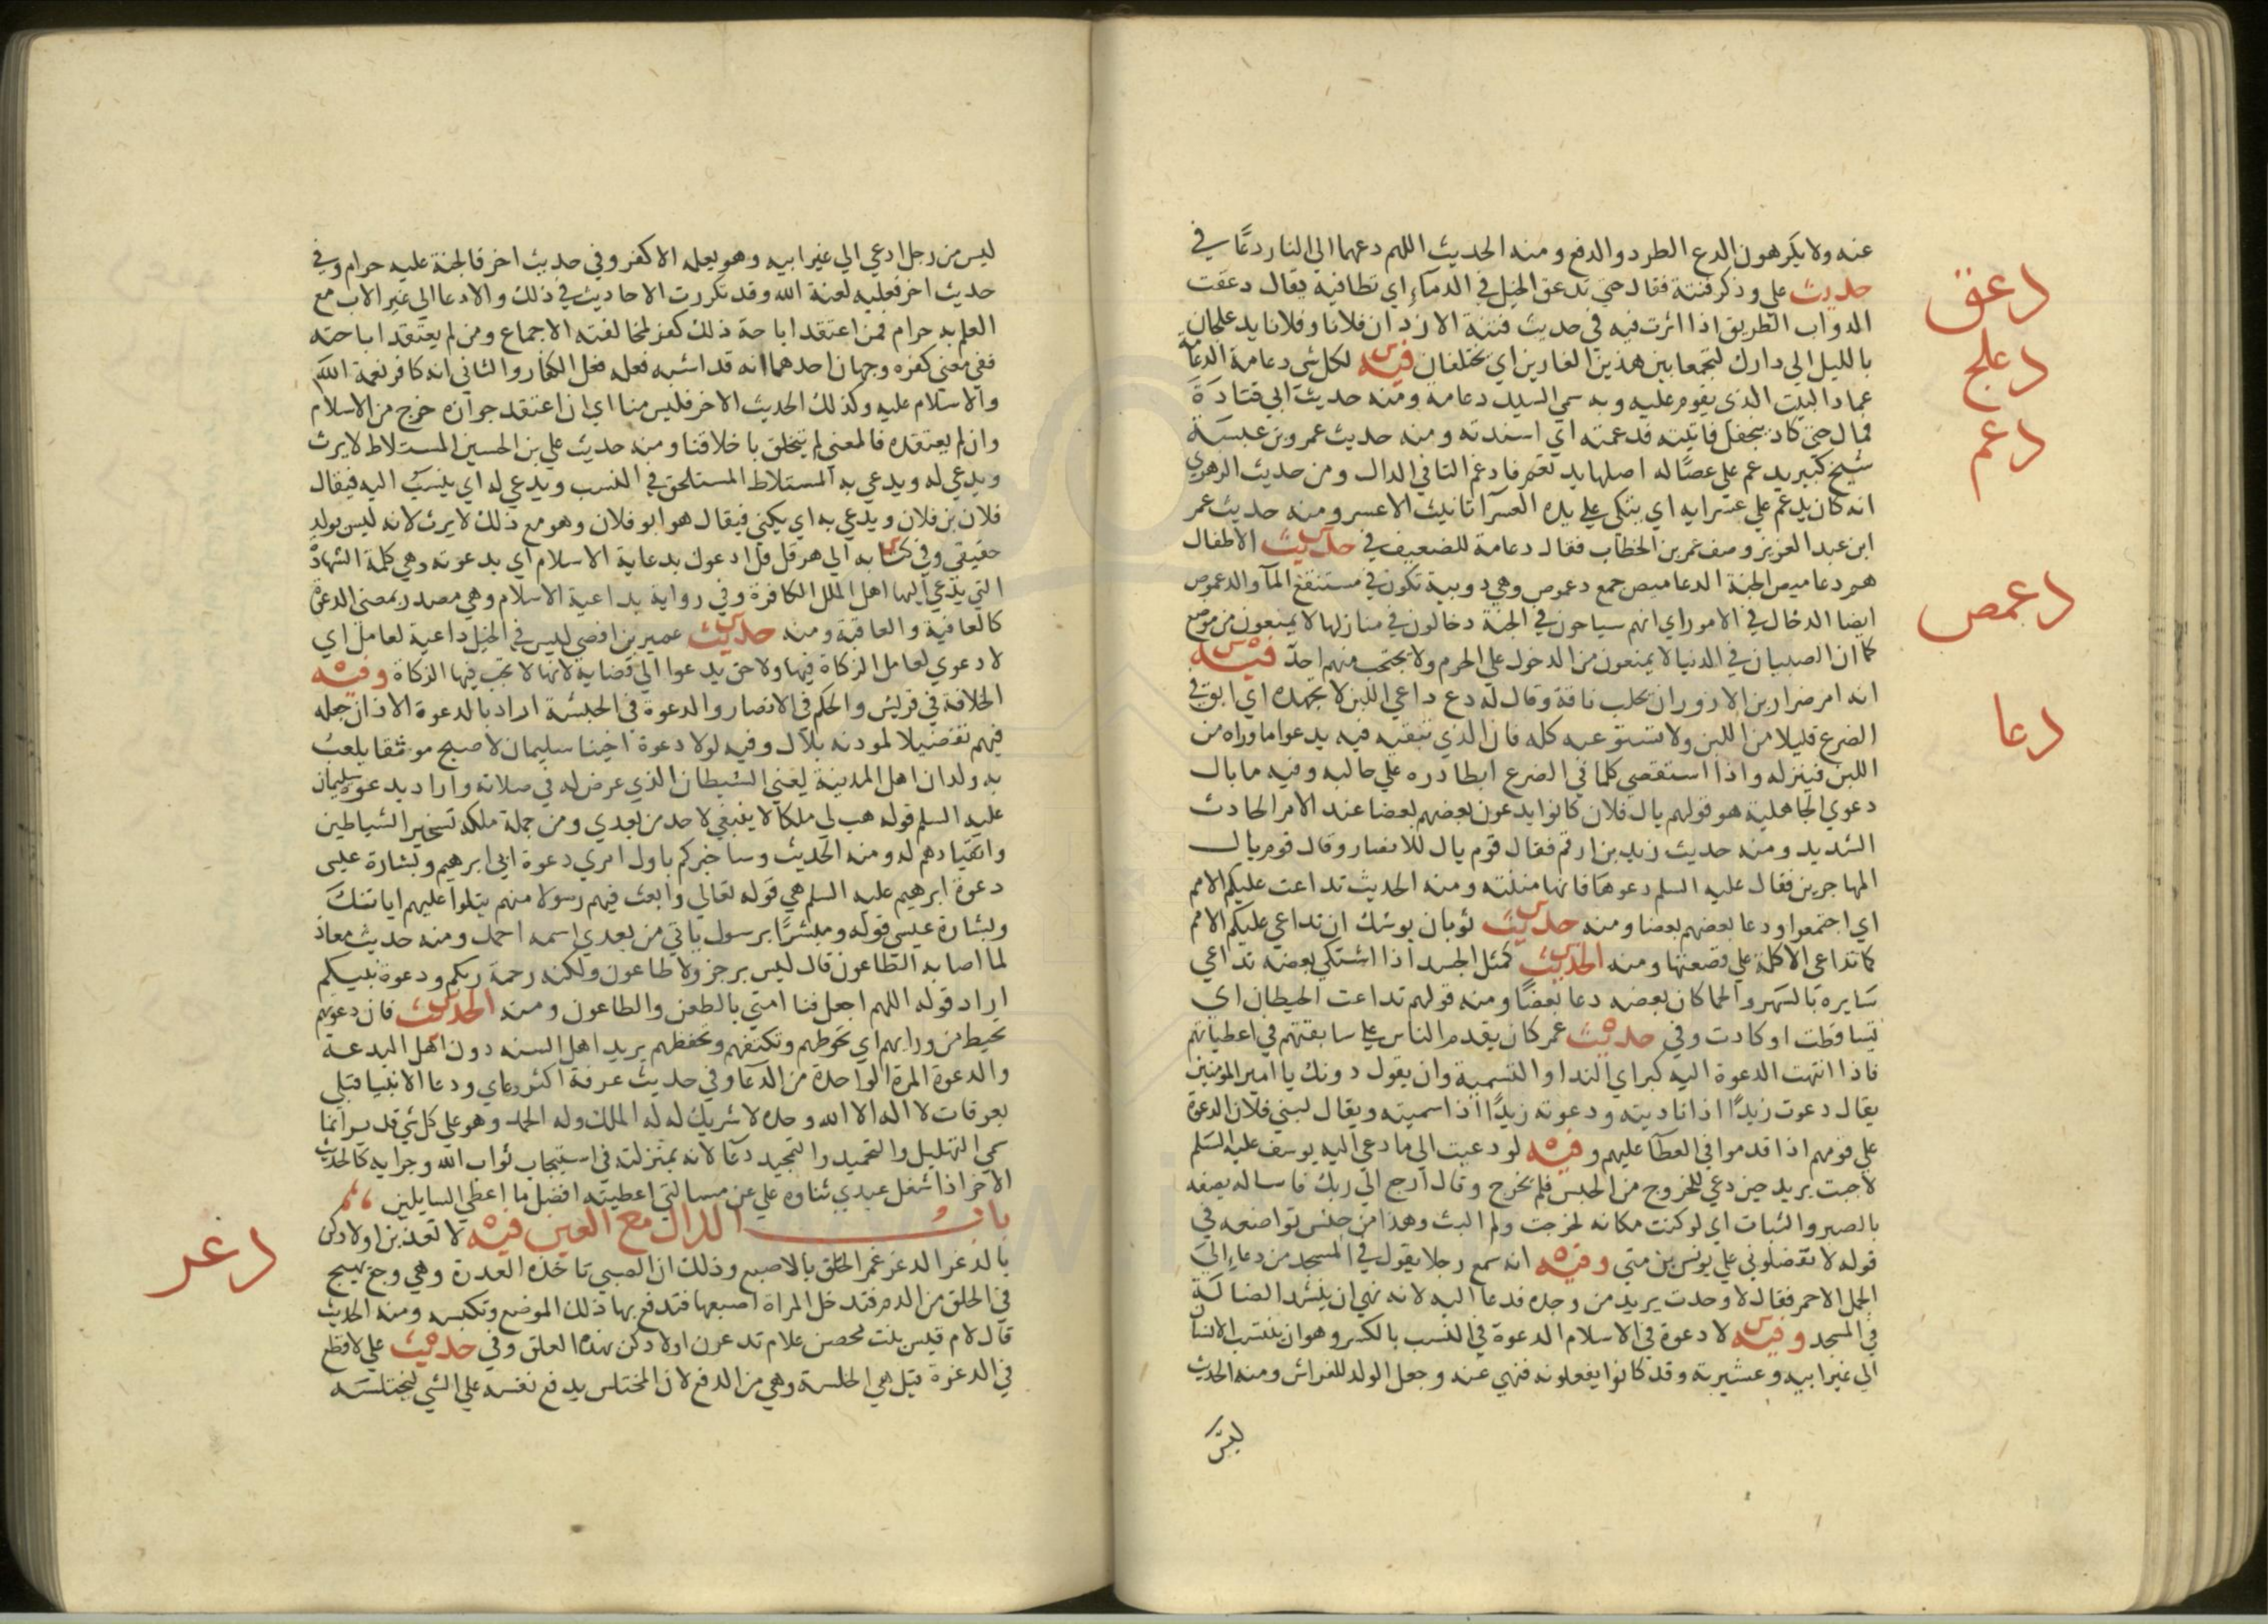 عنه ولا يكرهون الدع الطرد والدفع ومنه الحديث اللهم دعهما الى النار دعًّا في
دعق
حديث علي وذكر فتنة فقال حتى تدعق الخيل في الدماء اي تطا فيه يقال دعقت
الدواب الطريق اذا اثرت فيه في حديث فتنة الازد ان فلانا وفلانا يدعلجان
دعلج
بالليل الى دارك ليجمعا بين هذين الغارين اي يختلفان فيه س لكل شي دعامة الدعامة
عماد البيت الذي يقوم عليه وبه سمي السيد دعامة ومنه حديث ابي قتادة
دعم
فمال حتى كاد ينجفل فاتيته فدعمته اي اسندته ومنه حديث عمرو بن عبسة
شيخ كبير يدعم على عصًا له اصلها يدتعم فادغم التا في الدال ومن حديث الزهري
انه كان يدعم على عسرايه اي يتكي على يده العسرا تانيث الاعسر ومنه حديث عمر
ابن عبد العزيز وصف عمر بن الخطاب فقال دعامة للضعيف في حديث س الاطفال
دعمص
هم دعاميص الجنة الدعاميص جمع دعموص وهي دويبة تكون في مستنقع الما والدعموص
ايضا الدخال في الامور اي انهم سياحون في الجنة دخالون في منازلها لا يمنعون من موضع
كما ان الصبيان في الدنيا لا يمنعون من الدخول على الحرم ولا يحتجب منهم احد فيه س
دعا
انه امر ضرار بن الازور ان يحلب ناقة وقال له دع داعي اللبن لا تجهده اي ابق في
الضرع قليلا من اللبن ولا تستوعبه كله فان الذي تبقيه فيه يدعوا ما وراه من
اللبن فينزله واذا استقصي كلما في الضرع ابطا دره على حالبه وفيه ما بال
دعوي الجاهلية هو قولهم يال فلان كانوا يدعون بعضهم بعضا عند الامر الحادث
الشديد ومنه حديث زيد بن ارقم فقال قوم يال للانصار وقال قوم يال
المهاجرين فقال عليه السلم دعوها فانها منتنة ومنه الحديث تداعت عليكم الامم
اي اجتمعوا ودعا بعضهم بعضا ومنه حديث س ثوبان يوشك ان تداعي عليكم الامم
كما تداعى الاكلة على قصعتها ومنه الحديث س كمثل الجسد اذا اشتكي بعضه تداعي
سايره بالسهر والحما كان بعضه دعا بعضًا ومنه قولهم تداعت الحيطان اي
تساقطت او كادت وفي حديث ه عمر كان يقدم الناس على سابقتهم في اعطياتهم
فاذا انتهت الدعوة اليه كبر اي الندا والتسمية وان يقول دونك يا امير المومنين
يقال دعوت زيدًا اذا ناديته ودعوته زيدًا اذا سميته ويقال لبني فلان الدعوة
على قومهم اذا قدموا في العطا عليهم وفيه ه لو دعيت الى ما دعي اليه يوسف عليه السلم
لاجبت يريد حين دعي للخروج من الحبس فلم يخرج وقال ارجع الى ربك فاساله يصفه
بالصبر والثبات اي لو كنت مكانه لخرجت ولم البث وهذا من جنس تواضعه في
قوله لا تفضلوني على يونس بن متي وفيه ه انه سمع رجلا يقول في المسجد من دعا الى
الجمل الاحمر فقال لا وجدت يريد من وجده فدعا اليه لانه نهي ان ينشد الضالة
في المسجد وفيه س لا دعوة في الاسلام الدعوة في النسب بالكسر وهو ان ينتسب الانسان
الى غير ابيه وعشيرته وقد كانوا يفعلونه فنهي عنه وجعل الولد للفراش ومنه الحديث
ليس
ليس من رجل ادعي الي غير ابيه وهو يعلمه الا كفر وفي حديث اخر فالجنة عليه حرام وفي
حديث اخر فعليه لعنة الله وقد تكررت الاحاديث في ذلك والادعا الى غير الاب مع
العلم به حرام فمن اعتقد اباحة ذلك كفر لمخالفته الاجماع ومن لم يعتقد اباحته
ففي معنى كفره وجهان احدهما انه قد اشبه فعله فعل الكفار والثاني انه كافر نعمة الله
والاسلام عليه وكذلك الحديث الاخر فليس منا اي ان اعتقد جوازه خرج من الاسلام
وان لم يعتقده فالمعنى لم يتخلق باخلاقنا ومنه حديث علي بن الحسين المستلاط لا يرث
ويدعي له ويدعي به المستلاط المستلحق في النسب ويدعي له اي ينسب اليه فيقال
فلان بن فلان ويدعي به اي يكني فيقال هو ابو فلان وهو مع ذلك لا يرث لانه ليس بولد
حقيقي وفي كتابه س الي هرقل ادعوك بدعاية الاسلام اي بدعوته وهي كلمة الشهادة
التي يدعي اليها اهل الملل الكافرة وفي رواية بداعية الاسلام وهي مصدر بمعنى الدعوة
كالعافية والعاقبة ومنه حديث س عمير بن افصى ليس في الخيل داعية لعامل اي
لا دعوي لعامل الزكاة فيها ولا حق يدعوا الى قضايه لانها لا تجب فيها الزكاة وفيه ه
الخلافة في قريش والحكم في الانصار والدعوة في الحبشة اراد بالدعوة الاذان جعله
فيهم تفضيلا لموذنه بلال وفيه لولا دعوة اخينا سليمان لاصبح موثقا يلعب
به ولدان اهل المدينة يعني الشيطان الذي عرض له في صلاته واراد بدعوة سليمان
عليه السلم قوله هب لي ملكا لا ينبغي لاحد من بعدي ومن جملة ملكه تسخير الشياطين
وانقيادهم له ومنه الحديث وساخبركم باول امري دعوة ابي ابرهيم وبشارة عيسى
دعوة ابرهيم عليه السلم هي قوله تعالى وابعث فيهم رسولا منهم يتلوا عليهم اياتك
وبشارة عيسى قوله ومبشرًا برسول ياتي من بعدي اسمه احمد ومنه حديث معاذ
لما اصابه الطاعون قال ليس برجز ولا طاعون ولكنه رحمة ربكم ودعوة نبيكم
اراد قوله اللهم اجعل فنا امتي بالطعن والطاعون ومنه الحديث س فان دعوتهم
تحيط من ورايهم اي تحوطهم وتكنفهم وتحفظهم يريد اهل السنه دون اهل البدعة
والدعوة المرة الواحدة من الدعا وفي حديث عرفة اكثر دعاي ودعا الانبيا قبلي
بعرفات لا اله الا الله وحده لا شريك له له الملك وله الحمد وهو على كل شي قدير انما
سمي التهليل والتحميد والتمجيد دعا لانه بمنزلته في استيجاب ثواب الله وجزايه كالحديث
الاخر اذا شغل عبدي ثناوه علي عن مسالتي اعطيته افضل ما اعطي السايلين
باب الدال مع الغين فيه ه لا تعذبن اولادكن
دغر
بالدغر الدغر غمز الحلق بالاصبع وذلك ان الصبي تاخذه العذرة وهي وجع يهيج
في الحلق من الدم فتدخل المراة اصبعها فتدفع بها ذلك الموضع وتكبسه ومنه الحديث
قال لام قيس بنت محصن علام تدغرن اولادكن بهذه العلق وفي حديث ه علي لا قطع
في الدغرة قيل هي الخلسة وهي من الدفع لان المختلس يدفع نفسه على الشي ليختلسه